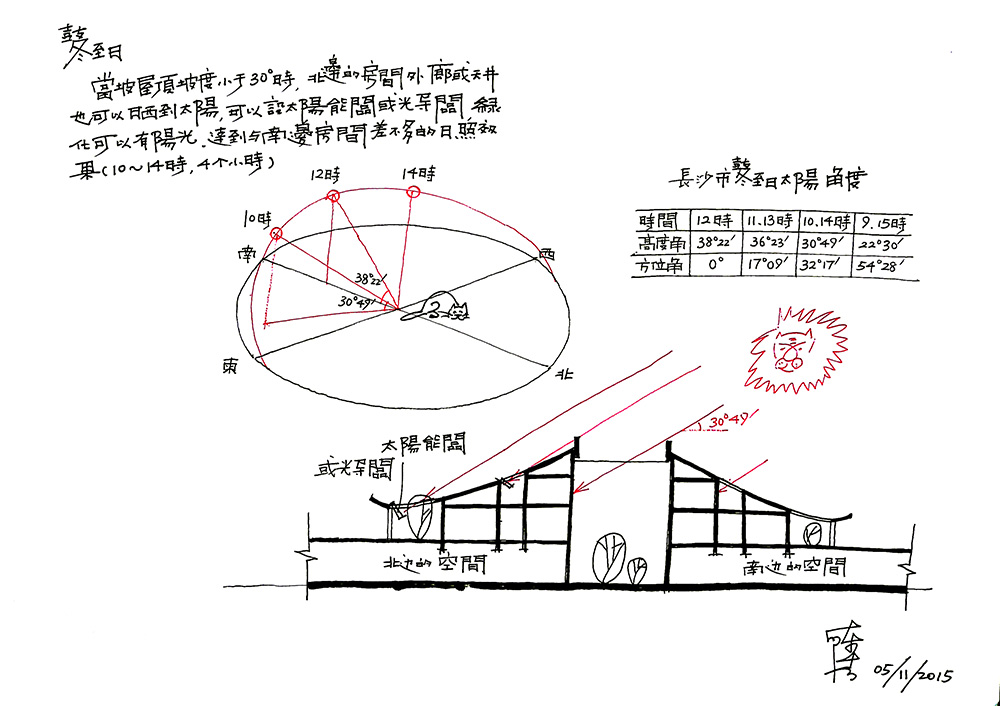 鼕至日
當坡屋頂坡度小于30°時,北邊的房間外廊或天井
也可以日晒到太陽,可以設太陽能闆或光導闆,綠
化可以有陽光.達到与南邊房間差不多的日照效
果(10～14時,4个小時)
12時
14時
10時
南
西
38°22′
30°49′
東
北
長沙市鼕至日太陽角度
時間 12時 11.13時 10.14時 9.15時
高度角 38°22′ 36°23′ 30°49′ 22°30′
方位角 0° 17°09′ 32°17′ 54°28′
30°49′
太陽能闆
或光導闆
北边的空間
南边的空間
05/11/2015